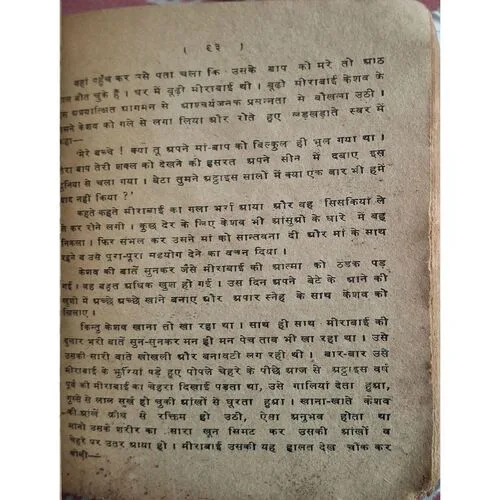 ( ६३ )
वहां पहुँच कर उसे पता चला कि उसके बाप को मरे तो आठ
साल बीत चुके हैं । घर में बूढ़ी मीराबाई थी । बूढ़ी मीराबाई केशव के
इस अप्रत्याशित आगमन से आश्चर्यजनक प्रसन्नता से बौखला उठी ।
उसने केशव को गले से लगा लिया और रोते हुए लड़खड़ाते स्वर में
कहा—
'मेरे बच्चे ! क्या तू अपने मां-बाप को बिल्कुल ही भूल गया था ।
तेरा बाप तेरी शक्ल को देखने की हसरत अपने सीने में दबाए इस
दुनिया से चला गया । बेटा तुमने अट्ठाइस सालों में क्या एक बार भी हमें
याद नहीं किया ?'
कहते कहते मीराबाई का गला भर्रा आया और वह सिसकियां ले
ले कर रोने लगी । कुछ देर के लिए केशव भी आंसुओं के धारे में बह
निकला । फिर संभल कर उसने मां को सान्तवना दी और मां के साथ
रहने व उसे पूरा-पूरा सहयोग देने का वचन दिया ।
केशव की बातें सुनकर जैसे मीराबाई की आत्मा को ठंडक पड़
गई । वह बहुत अधिक खुश हो गई । उस दिन अपने बेटे के आने की
खुशी में अच्छे अच्छे खाने बनाए और अपार स्नेह के साथ केशव को
खिलाए ।
किन्तु केशव खाना तो खा रहा था । साथ ही साथ मीराबाई की
दुलार भरी बातें सुन-सुनकर मन ही मन पेच ताव भी खा रहा था । उसे
उसकी सारी बातें खोखली और बनावटी लग रही थी । बार-बार उसे
मीराबाई के झुर्रियां पड़े हुए पोपले चेहरे के पीछे आज से अट्ठाइस वर्ष
पूर्व की मीराबाई का चेहरा दिखाई पड़ता था, उसे गालियां देता हुआ,
गुस्से से लाल सुर्ख हो चुकी आंखों से घूरता हुआ । खाना-खाते केशव
की आंखें क्रोध से रक्तिम हो उठी, ऐसा अनुभव होता था
मानो उसके शरीर का सारा खून सिमट कर उसकी आंखों व
चेहरे पर उतर आया हो । मीराबाई उसकी यह हालत देख चौंक कर
बोली—